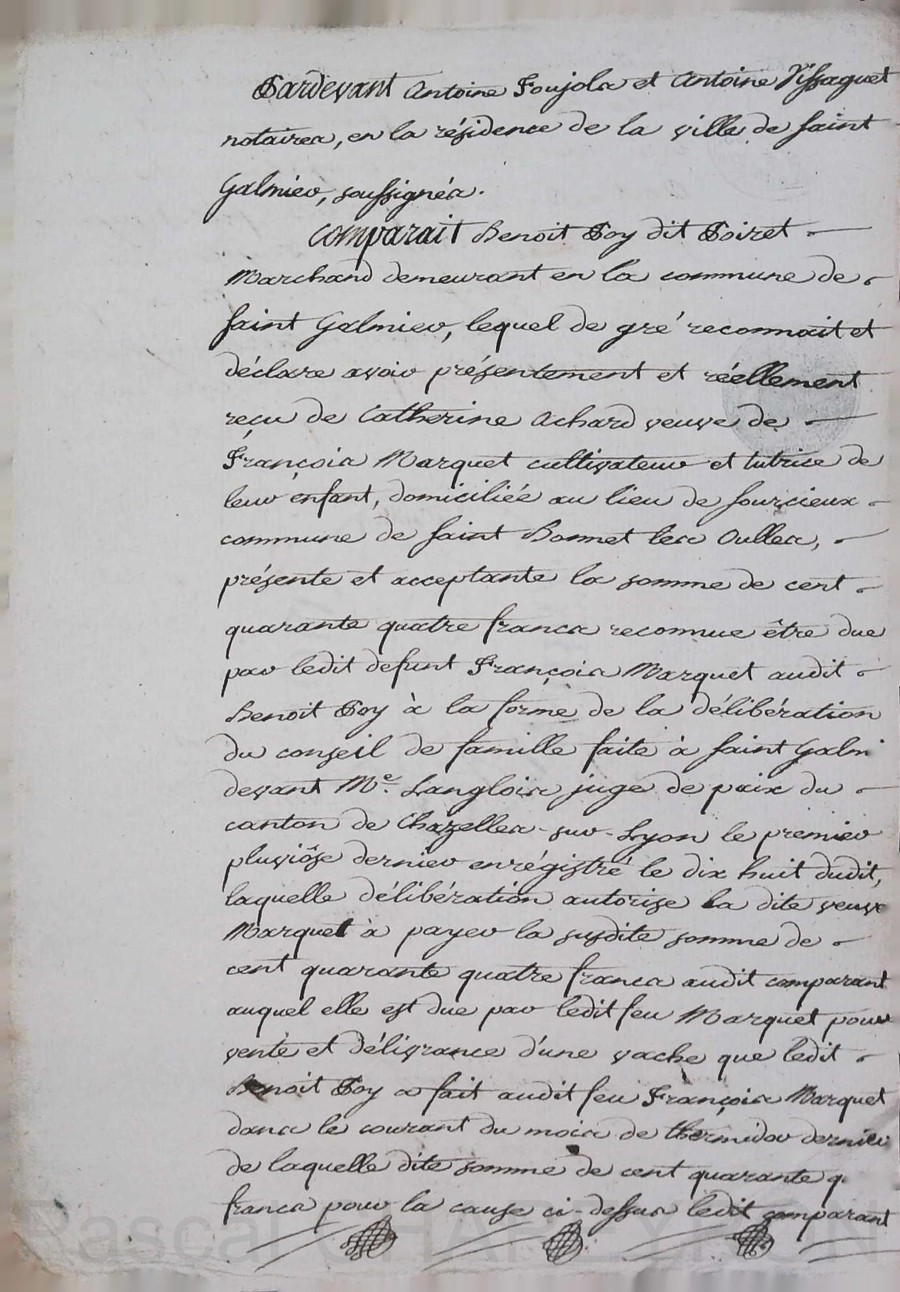 Pardevant Antoine Foujols et Antoine Vissaguet
notaires, en la résidence de la ville de Saint
Galmier, soussignés.
Comparait Benoit Poy dit Poiret
Marchand demeurant en la commune de
Saint Galmier, lequel de gré reconnait et
déclare avoir présentement et réellement
reçu de Catherine Achard veuve de
François Marquet cultivateur et tutrice de
leur enfant, domiciliée au lieu de fourcieux
commune de Saint Bonnet les Oulles,
présente et acceptante la somme de cent
quarante quatre francs reconnue être due
par ledit defunt François Marquet audit
Benoit Poy à la forme de la délibération
du conseil de famille faite à Saint Galmi
devant Me. Langlois juge de paix du
canton de Chazelles-sur-Lyon le premier
pluviôse dernier enrégistré le dix huit dudit,
laquelle délibération autorise la dite veuve
Marquet à payer la susdite somme de
cent quarante quatre francs audit comparant
auquel elle est due par ledit feu Marquet pour
vente et délivrance d'une vache que ledit
Benoit Poy a fait audit feu François Marquet
dans le courant du mois de thermidor dernier
de laquelle dite somme de cent quarante q
francs pour la cause ci-dessus ledit comparant